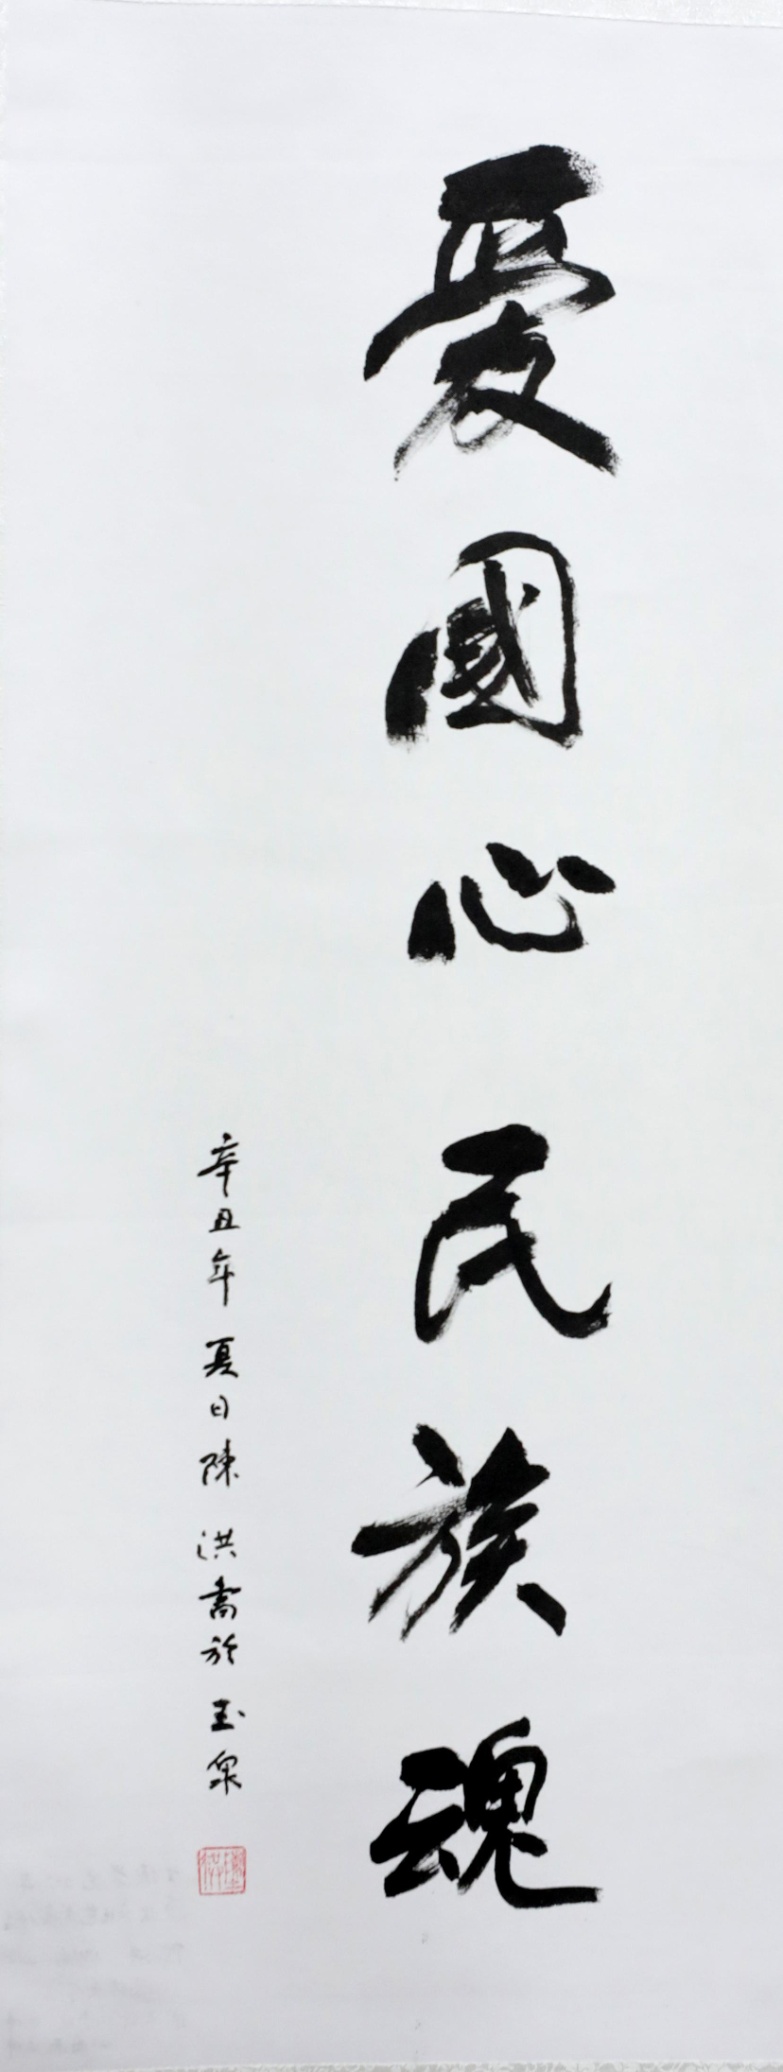 爱國心民族魂
辛丑年夏日陳洪書於玉泉